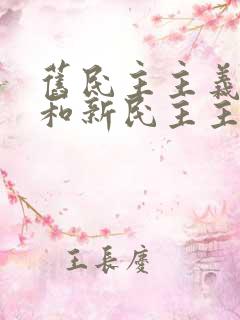 舊民主主義
和新民主主
王長慶